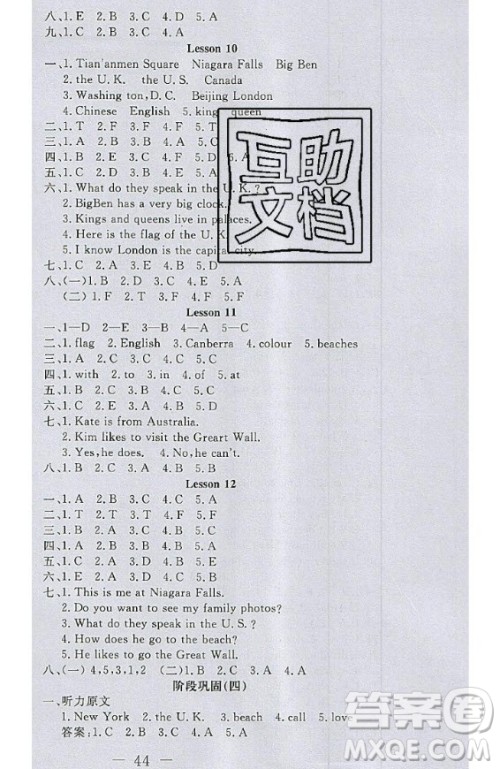 八、1. E 2. B 3. C 4. D 5. A
九、1. C 2. C 3. A
Lesson 10
一、1. Tian'anmen Square Niagara Falls Big Ben
2. the U. K. the U. S. Canada
3. Washing ton, D. C. Beijing London
4. Chinese English 5. king queen
二、1. T 2. F 3. F 4. F 5. T
三、1. A 2. B 3. C
四、1. B 2. A 3. C
五、1. C 2. D 3. A
六、1. What do they speak in the U. K. ?
2. BigBen has a very big clock.
3. Kings and queens live in palaces.
4. Here is the flag of the U. K.
5. I know London is the capital city.
七、1. C 2. A 3. E 4. D 5. B
八、(一) 1. B 2. A 3. C
(二) 1. F 2. F 3. T
Lesson 11
一、1—D 2—E 3—B 4—A 5—C
二、1. flag 2. English 3. Canberra 4. colour 5. beaches
四、1. with 2. to 3. in 4. of 5. at
五、1. B 2. C 3. C 4. B 5. A
六、1. C 2. E 3. A 4. B 5. D
七、1. Kate is from Australia.
2. Kim likes to visit the Greart Wall.
3. Yes, he does. 4. No, he can't.
八、1. B 2. C 3. A 4. B
Lesson 12
一、1. A 2. B 3. C 4. C 5. A
二、1. T 2. T 3. T 4. F 5. F
三、1. B 2. C 3. A 4. C 5. B
四、1. A 2. A 3. B 4. B 5. A
五、1. C 2. C 3. C 4. B 5. B
六、1. B 2. C 3. A 4. D 5. E
七、1. This is me at Niagara Falls.
2. Do you want to see my family photos?
3. What do they speak in the U. S. ?
4. How does he go to the beach?
5. He likes to go to the Great Wall.
八、(一) 4,5,3,1,2 (二)1. C 2. A 3. C 4. A
阶段巩固(四)
一、听力原文
1. New York 2. the U. K. 3. beach 4. call 5. love
答案:1. B 2. B 3. B 4. A 5. A
— 44 —
互助
文档
答案圈
MXQE.COM